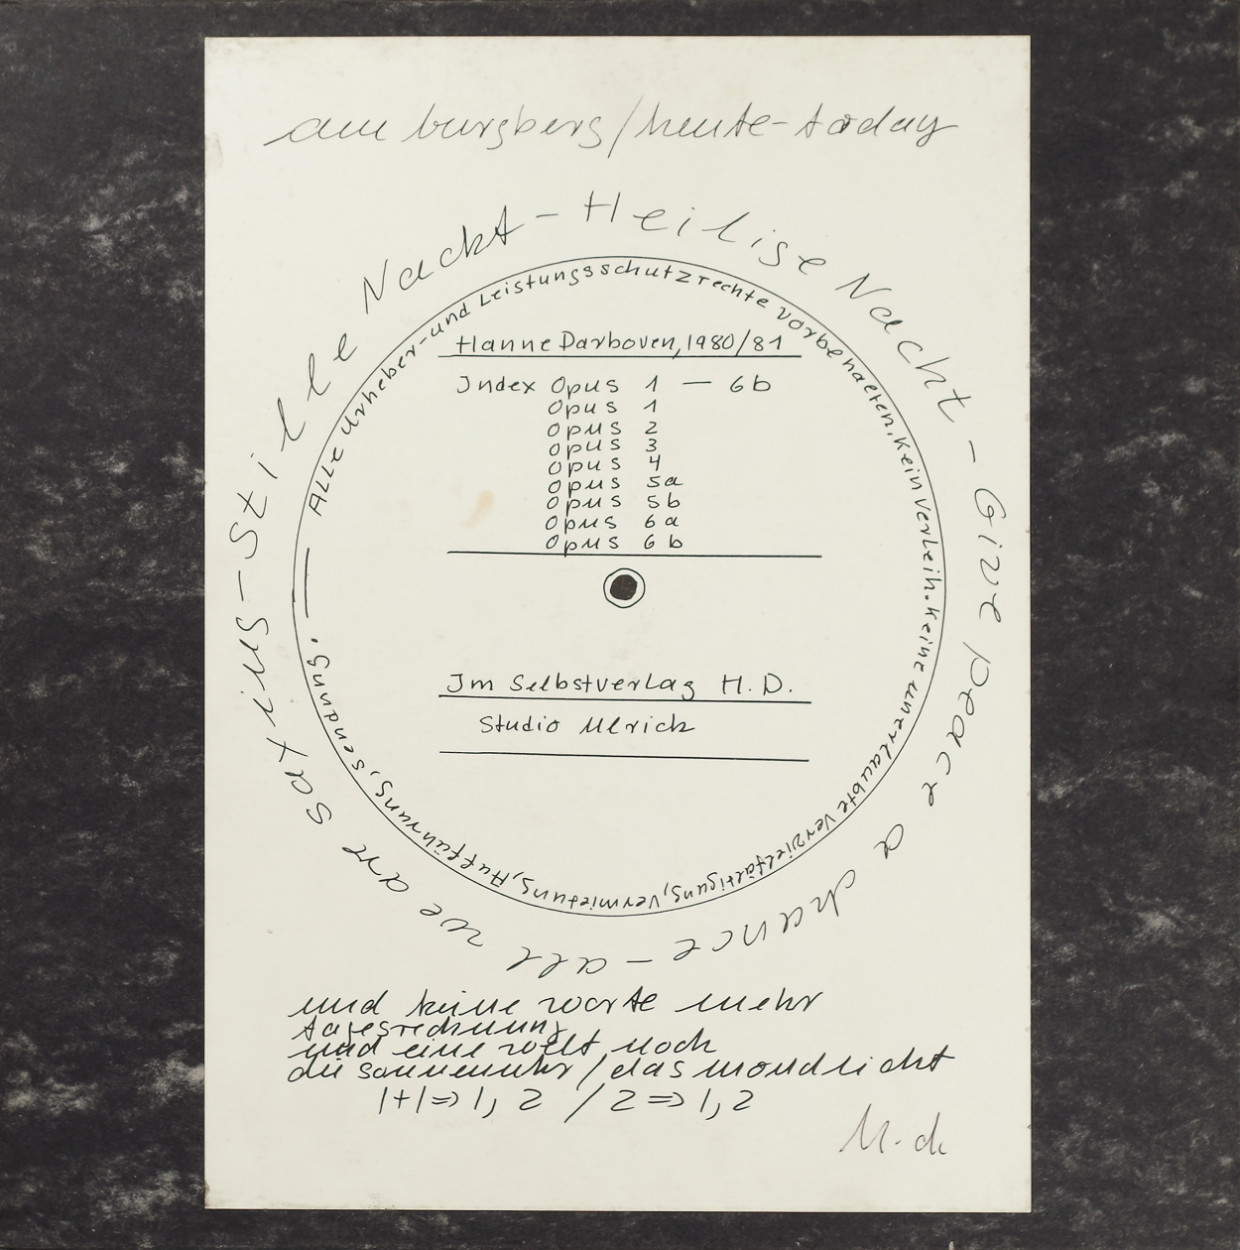 am burgberg/heute-today
Stille Nacht - Heilige Nacht - Give peace a chance - all we are saying -
Alle Urheber- und Leistungsschutzrechte vorbehalten. Kein Verleih. Keine unerlaubte Vervielfältigung, Vermietung, Aufführung, Sendung.
Hanne Darboven, 1980/81
Index Opus 1 — 6b
Opus 1
Opus 2
Opus 3
Opus 4
Opus 5a
Opus 5b
Opus 6a
Opus 6b
Im Selbstverlag H.D.
Studio Ulrich
und keine worte mehr
tagesrechnung
und eine welt noch
die sonnenuhr/das mondlicht
1+1=>1,2 / 2=>1,2